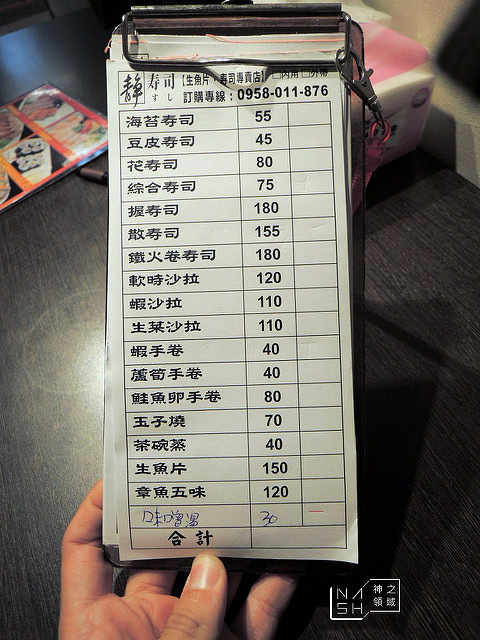 靜 壽司 【生魚片、壽司專賣店】 □內用 □外帶
すし 訂購專線：0958-011-876
海苔壽司 55
豆皮壽司 45
花壽司 80
綜合壽司 75
握壽司 180
散壽司 155
鐵火卷壽司 180
軟時沙拉 120
蝦沙拉 110
生菜沙拉 110
蝦手卷 40
蘆筍手卷 40
鮭魚卵手卷 80
玉子燒 70
茶碗蒸 40
生魚片 150
章魚五味 120
味噌湯 30
合計
NASH 神之領域